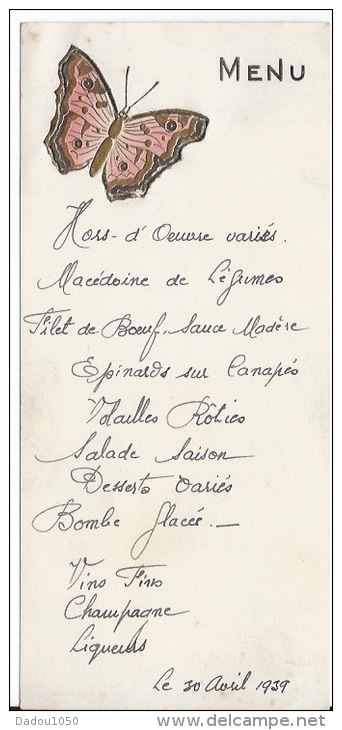 MENU
Hors-d'Oeuvre variés.
Macédoine de Légumes
Filet de Boeuf, Sauce Madère
Epinards sur Canapés
Volailles Rôties
Salade Saison
Desserts Variés
Bombe glacée._
Vins Fins
Champagne
Liqueurs
Le 30 Avril 1939
Dadou1050
www.delcampe.net